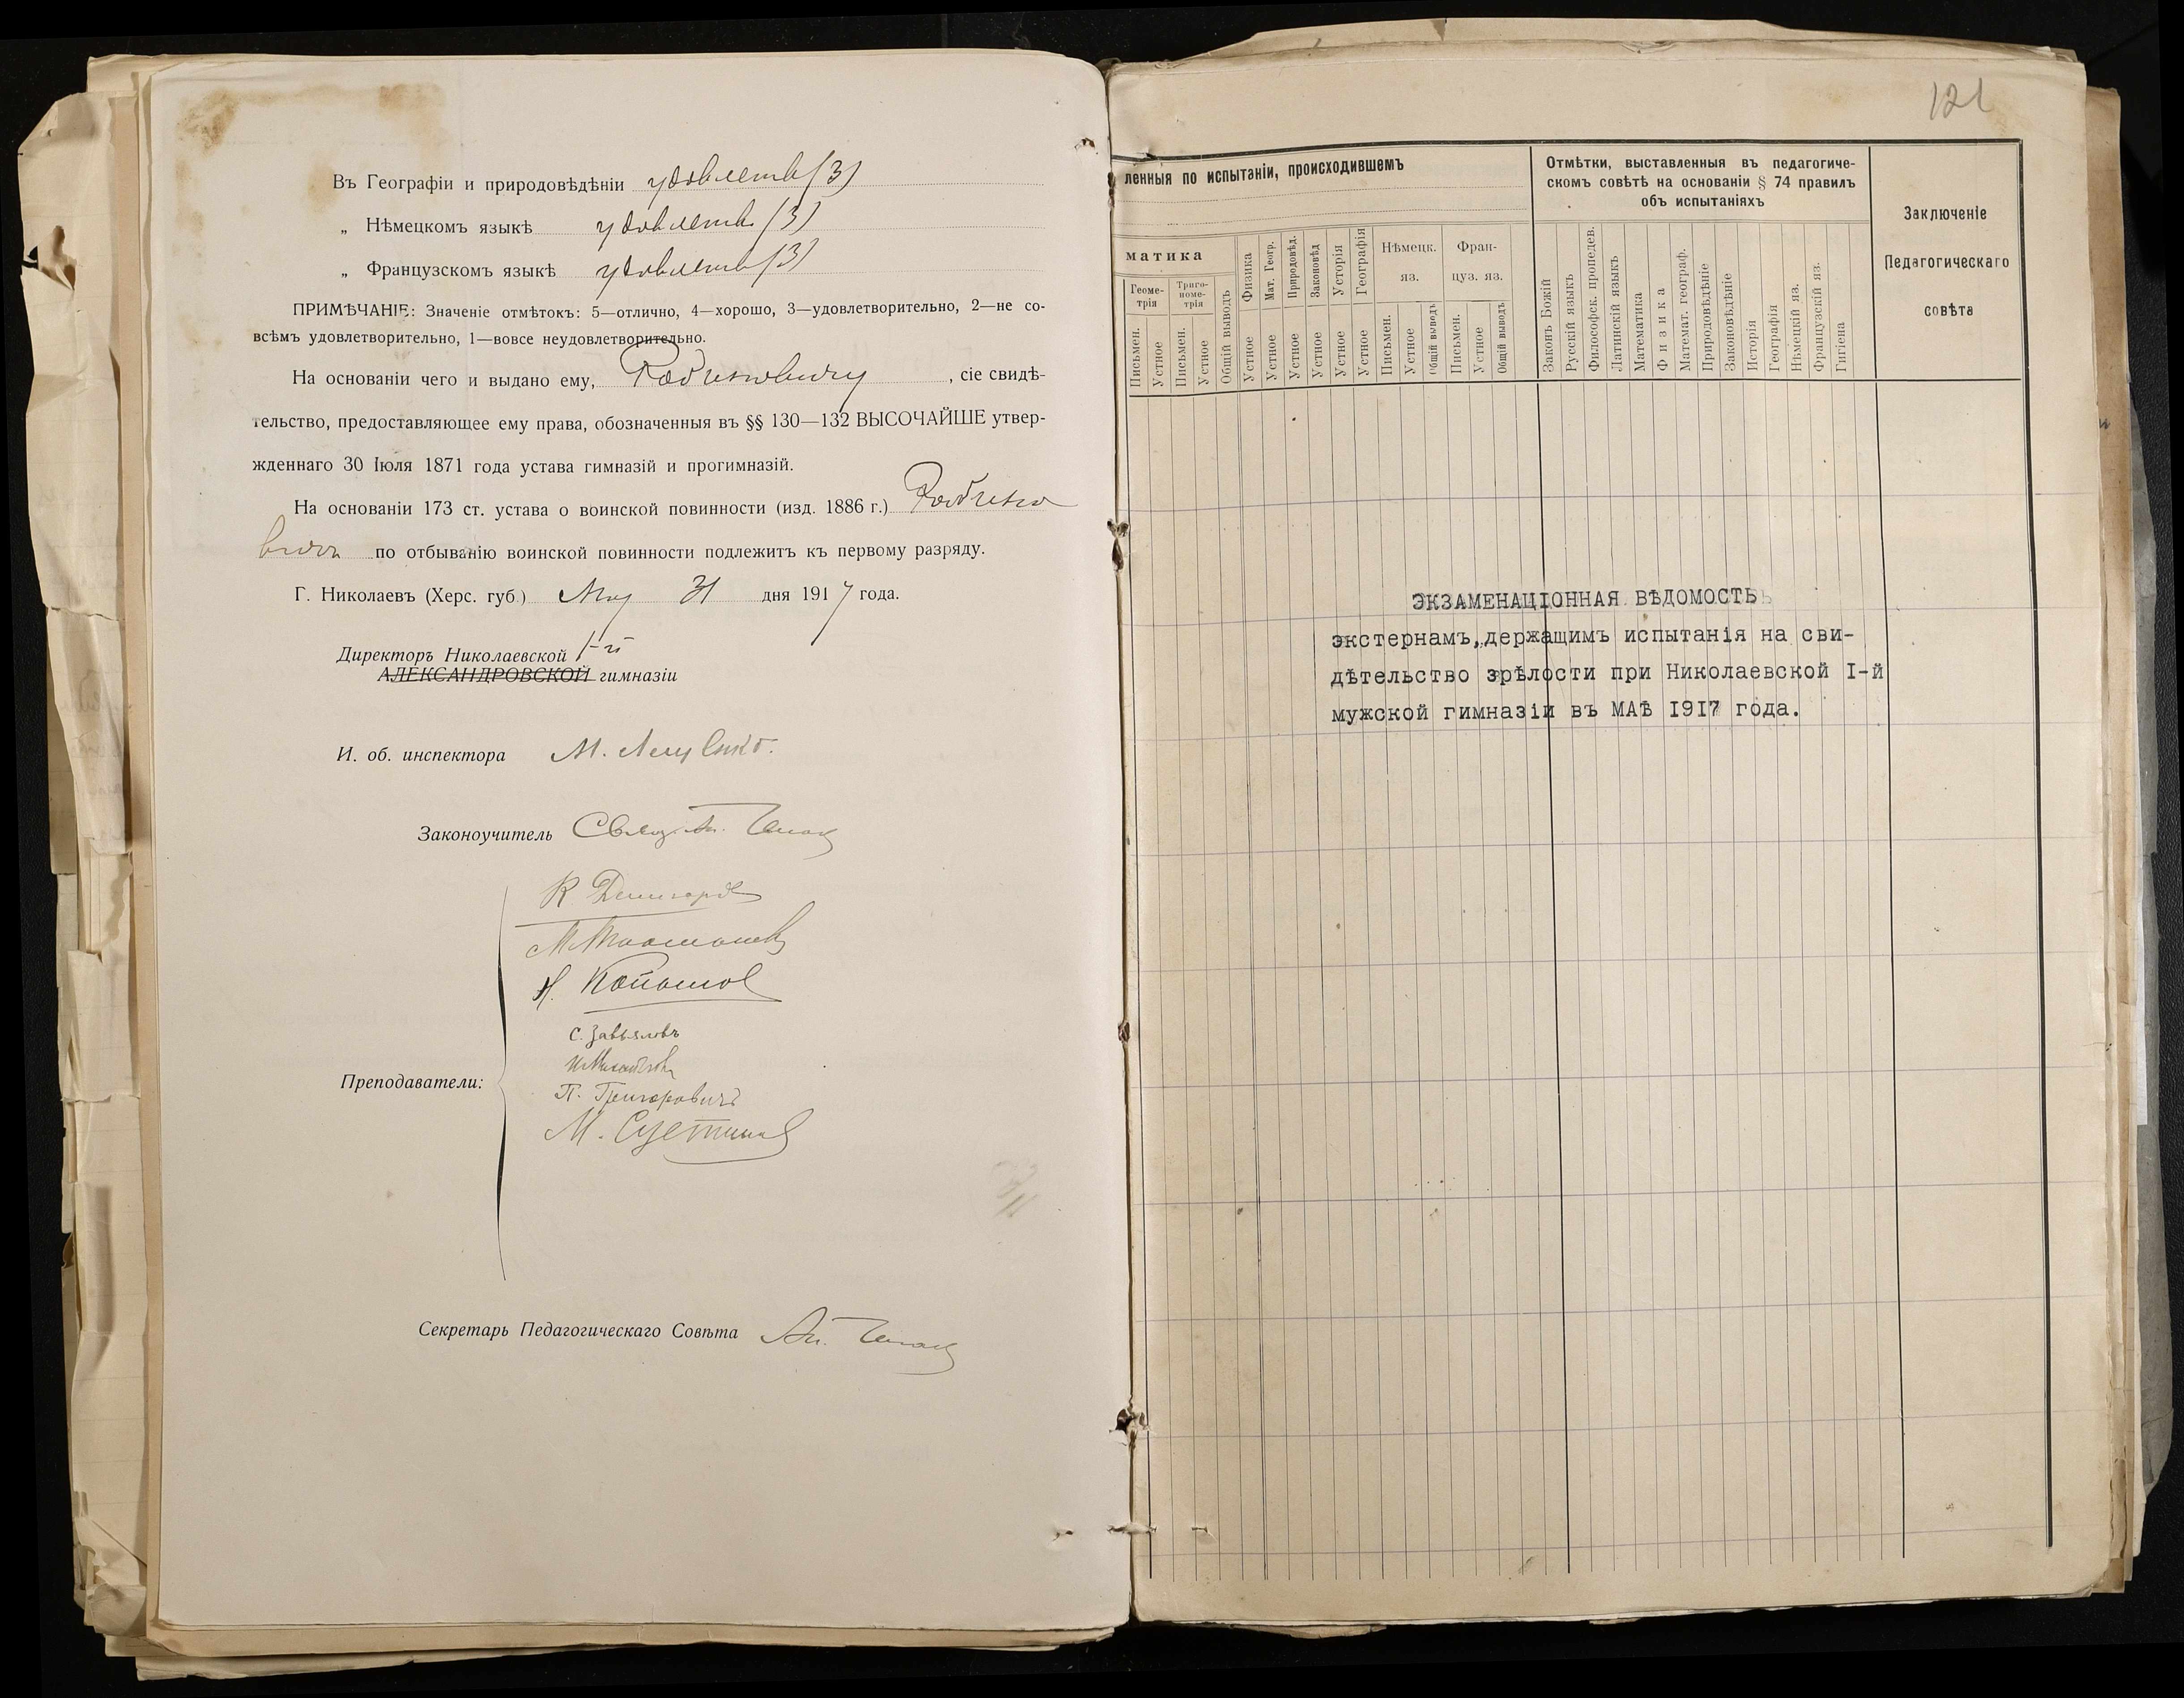 Въ Географіи и природовѣдѣніи удовлетв (3)
„ Нѣмецкомъ языкѣ удовлетв. (3)
„ Французскомъ языкѣ удовлетв (3)
ПРИМѢЧАНІЕ: Значеніе отмѣтокъ: 5—отлично, 4—хорошо, 3—удовлетворительно, 2—не со-
всѣмъ удовлетворительно, 1—вовсе неудовлетворительно.
На основаніи чего и выдано ему, , сіе свидѣ-
тельство, предоставляющее ему права, обозначенныя въ §§ 130—132 ВЫСОЧАЙШЕ утвер-
жденнаго 30 Іюля 1871 года устава гимназій и прогимназій.
На основаніи 173 ст. устава о воинской повинности (изд. 1886 г.)
по отбыванію воинской повинности подлежитъ къ первому разряду.
Г. Николаевъ (Херс. губ.) Мая 31 дня 1917 года.
Директоръ Николаевской 1-й
АЛЕКСАНДРОВСКОЙ гимназіи
И. об. инспектора М.
Законоучитель Свящ. Ал.
К
М
Н.
С. Завьяловъ
И
Преподаватели:
П. Григоровичъ
М.
Секретарь Педагогическаго Совѣта Ал.
121
ленныя по испытаніи, происходившемъ
Отмѣтки, выставленныя въ педагогиче-
скомъ совѣтѣ на основаніи § 74 правилъ
объ испытаніяхъ
Заключеніе
Педагогическаго
совѣта
матика
Геоме-
трія
Триго-
номе-
трія
Письмен.
Устное
Письмен.
Устное
Общій выводъ
Физика
Устное
Мат. Геогр.
Устное
Природовѣд.
Устное
Законовѣд
Устное
Усторія
Устное
Географія
Устное
Нѣмецк.
яз.
Письмен.
Устное
Общій выводъ
Фран-
цуз. яз.
Письмен.
Устное
Общій выводъ
Законъ Божій
Русскій языкъ
Философск. пропедев.
Латинскій языкъ
Математика
Физика
Математ. географ.
Природовѣдѣніе
Законовѣдѣніе
Исторія
Географія
Нѣмецкій яз.
Французскій яз.
Гигіена
ЭКЗАМЕНАЦІОННАЯ ВѢДОМОСТЬ
экстернамъ, держащимъ испытанія на сви-
дѣтельство зрѣлости при Николаевской I-й
мужской гимназіи въ МАѢ 1917 года.